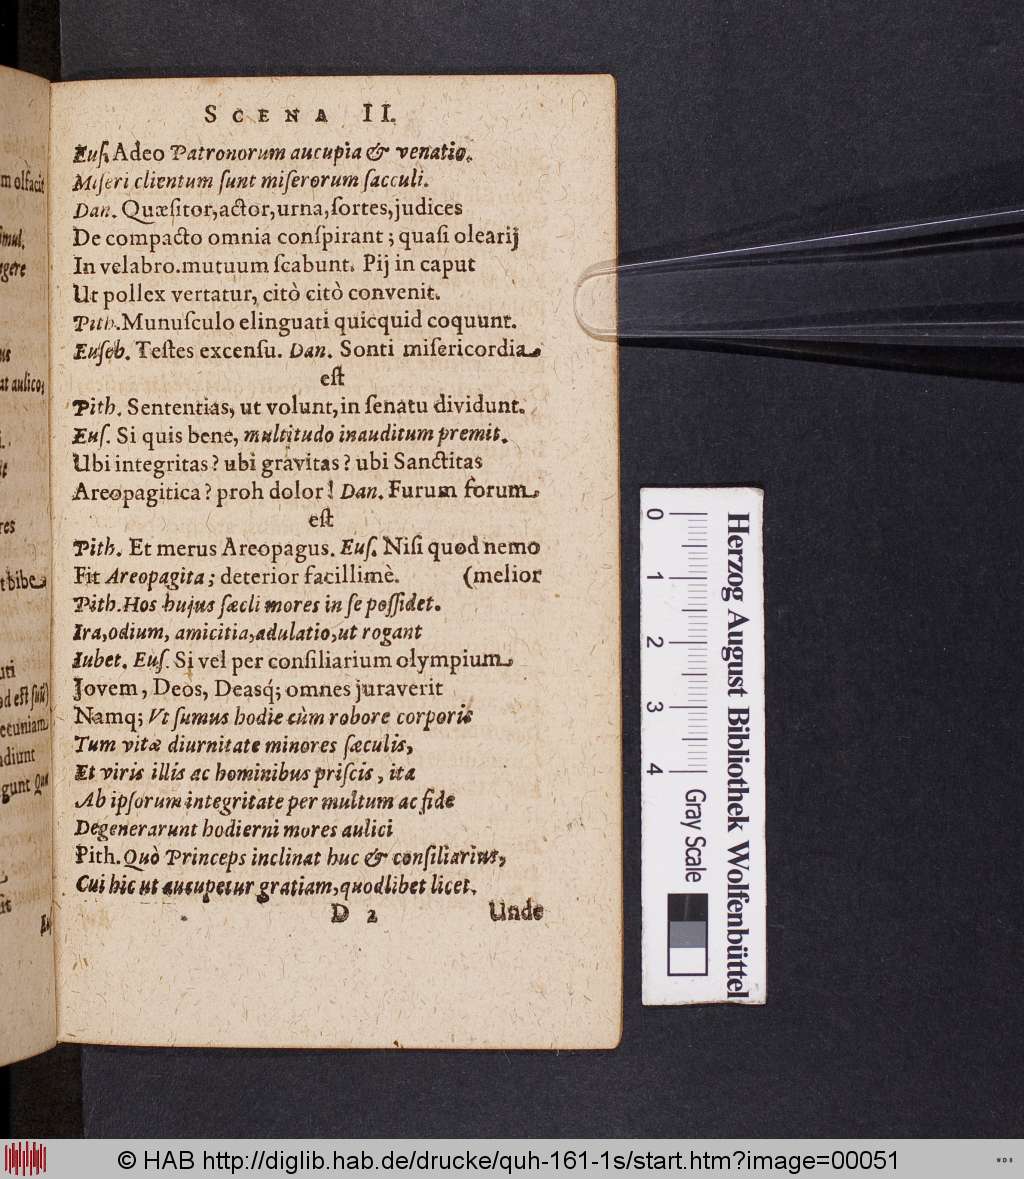 SCENA II.
Euſ. Adeo Patronorum aucupia & venatio.
Miſeri clientum ſunt miſerorum ſacculi.
Dan. Quæſitor, actor, urna, ſortes, judices
De compacto omnia conſpirant; quaſi olearij
In velabro. mutuum ſcabunt. Pij in caput
Ut pollex vertatur, citò citò convenit.
Pith. Munuſculo elinguati quicquid coquunt.
Euſeb. Teſtes excenſu. Dan. Sonti miſericordia
eſt
Pith. Sententias, ut volunt, in ſenatu dividunt.
Euſ. Si quis bene, multitudo inauditum premit.
Ubi integritas? ubi gravitas? ubi Sanctitas
Areopagitica? proh dolor! Dan. Furum forum
eſt
Pith. Et merus Areopagus. Euſ. Niſi quod nemo
Fit Areopagita; deterior facillimè. (melior
Pith. Hos hujus ſæcli mores in ſe poſſidet.
Ira, odium, amicitia, adulatio, ut rogant
Iubet. Euſ. Si vel per conſiliarium olympium
Jovem, Deos, Deasq́; omnes juraverit
Namq; Vt ſumus hodie cùm robore corporis
Tum vitæ diurnitate minores ſæculis,
Et viris illis ac hominibus priſcis, ita
Ab ipſorum integritate per multum ac fide
Degenerarunt hodierni mores aulici
Pith. Quò Princeps inclinat huc & conſiliarius,
Cui hic ut aucupetur gratiam, quodlibet licet.
D 2 Unde
m olfacit
ſimul.
egere
us
at aulico;
res
t bibe
uti
od eſt ſuũ)
ecuniam
diunt
gunt Quæ
it
0 1 2 3 4
Gray Scale
Herzog August Bibliothek Wolfenbüttel
© HAB http://diglib.hab.de/drucke/quh-161-1s/start.htm?image=00051